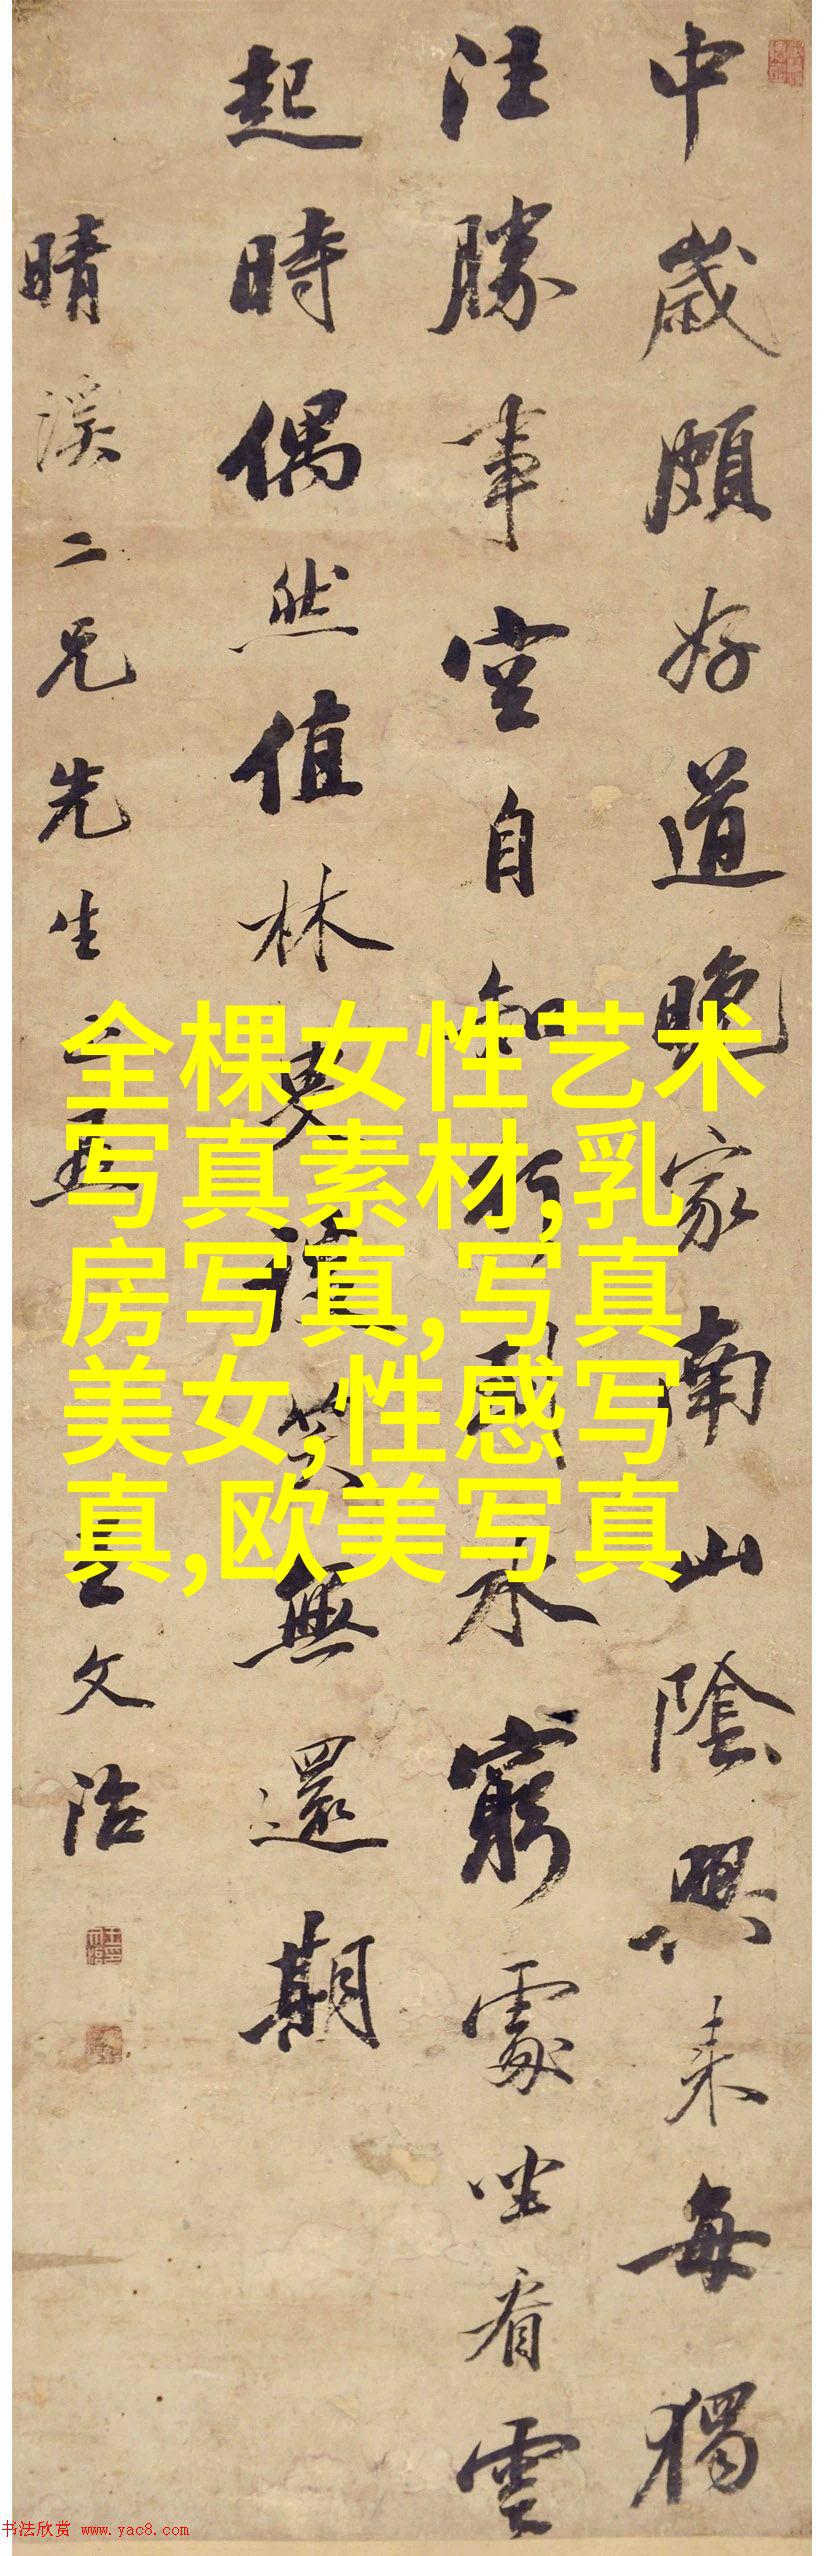 中歲頗好道晚家南山陰興來每獨
往勝事空自知行到水窮處坐看雲
起時偶然值林叟談笑無還期
晴溪二兄先生之正王文治
全棵女性艺术
写真素材,乳
房写真,写真
美女,性感写
真,欧美写真
书法欣赏 www.yac8.com